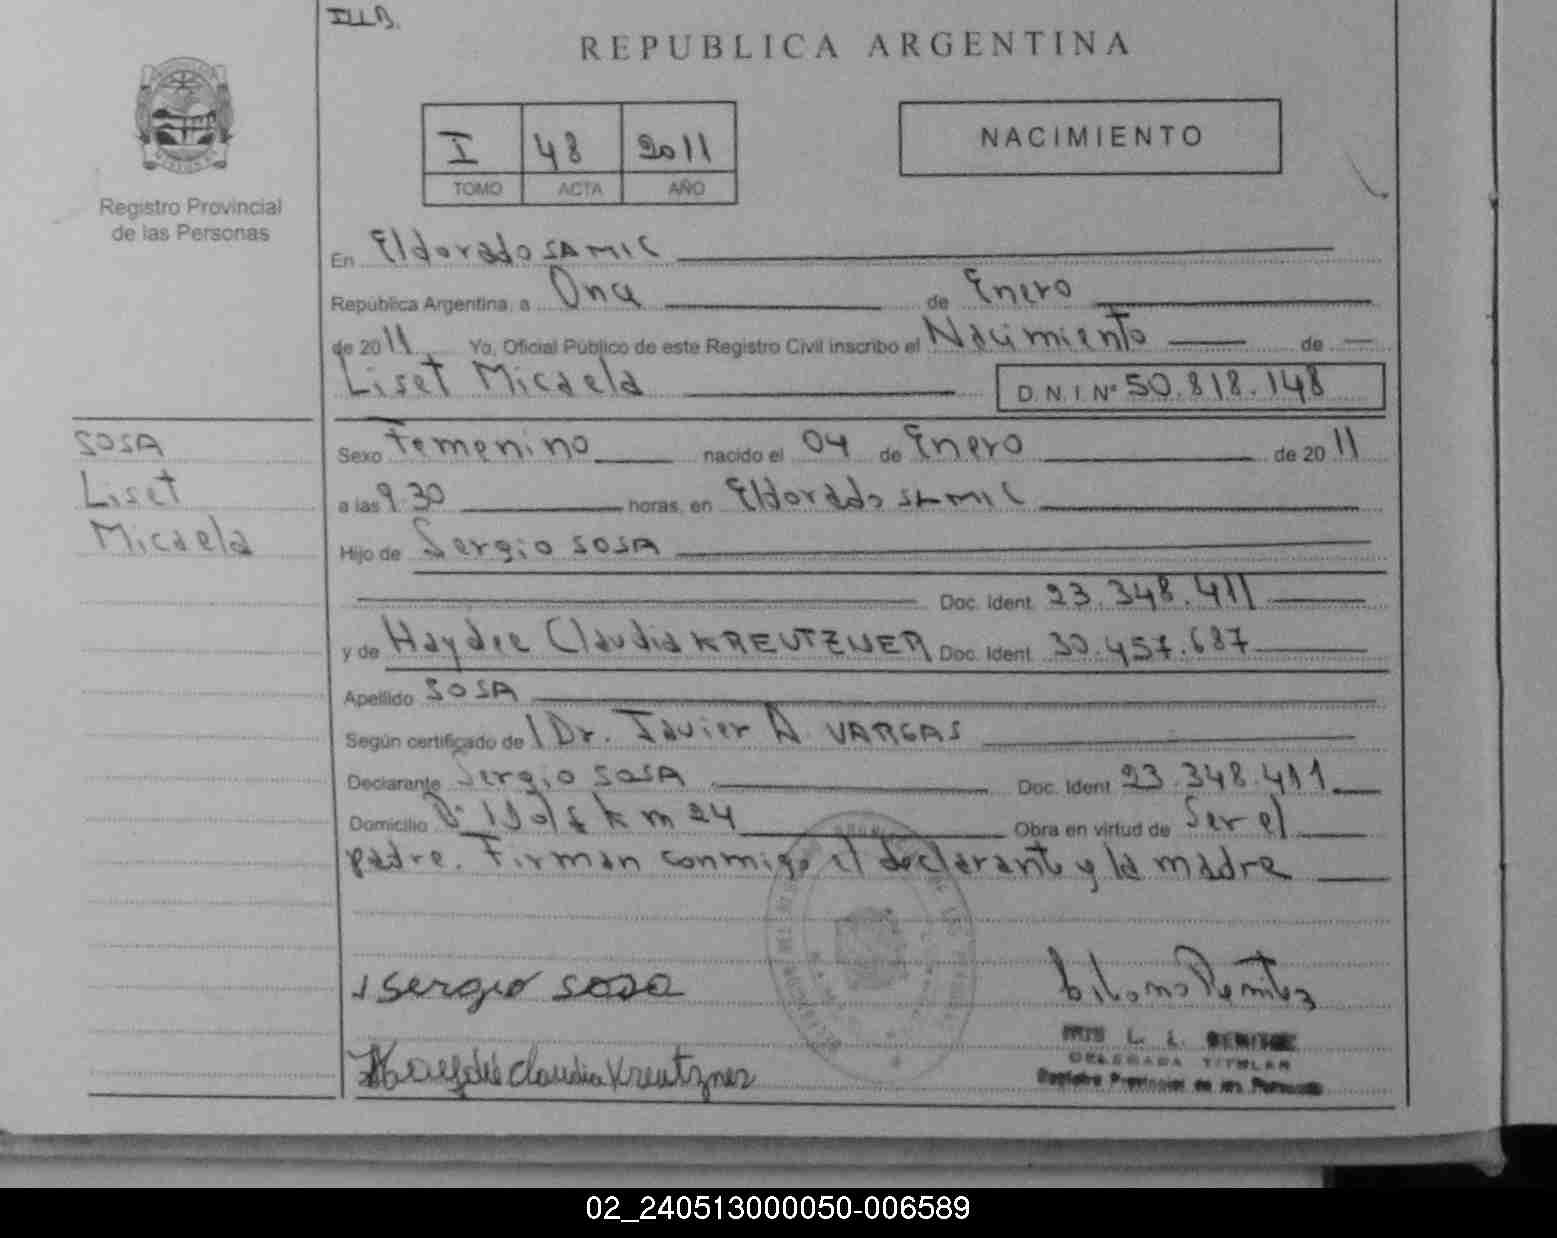 REPUBLICA ARGENTINA
I 48 2011
TOMO ACTA AÑO
NACIMIENTO
Registro Provincial
de las Personas
En Eldorado SAMIC
República Argentina, a Once de Enero
de 2011 Yo, Oficial Público de este Registro Civil inscribo el Nacimiento de
Liset Micaela D. N. I. Nº 50.818.148
SOSA
Liset
Micaela
Sexo Femenino nacido el 04 de Enero de 2011
a las 9.30 horas, en Eldorado SAMIC
Hijo de Sergio SOSA
Doc. Ident. 23.348.411
y de Haydee Claudia KREUTZNER Doc. Ident. 30.457.687
Apellido SOSA
Según certificado de Dr. Javier A. VARGAS
Declarante Sergio SOSA Doc. Ident. 23.348.411
Domicilio km 24 Obra en virtud de Ser el
padre. Firman conmigo el declarante y la madre
Sergio sosa
Haydeé Claudia Kreutzner
L. L.
DELEGADA TITULAR
Registro Provincial de las Personas
02_240513000050-006589